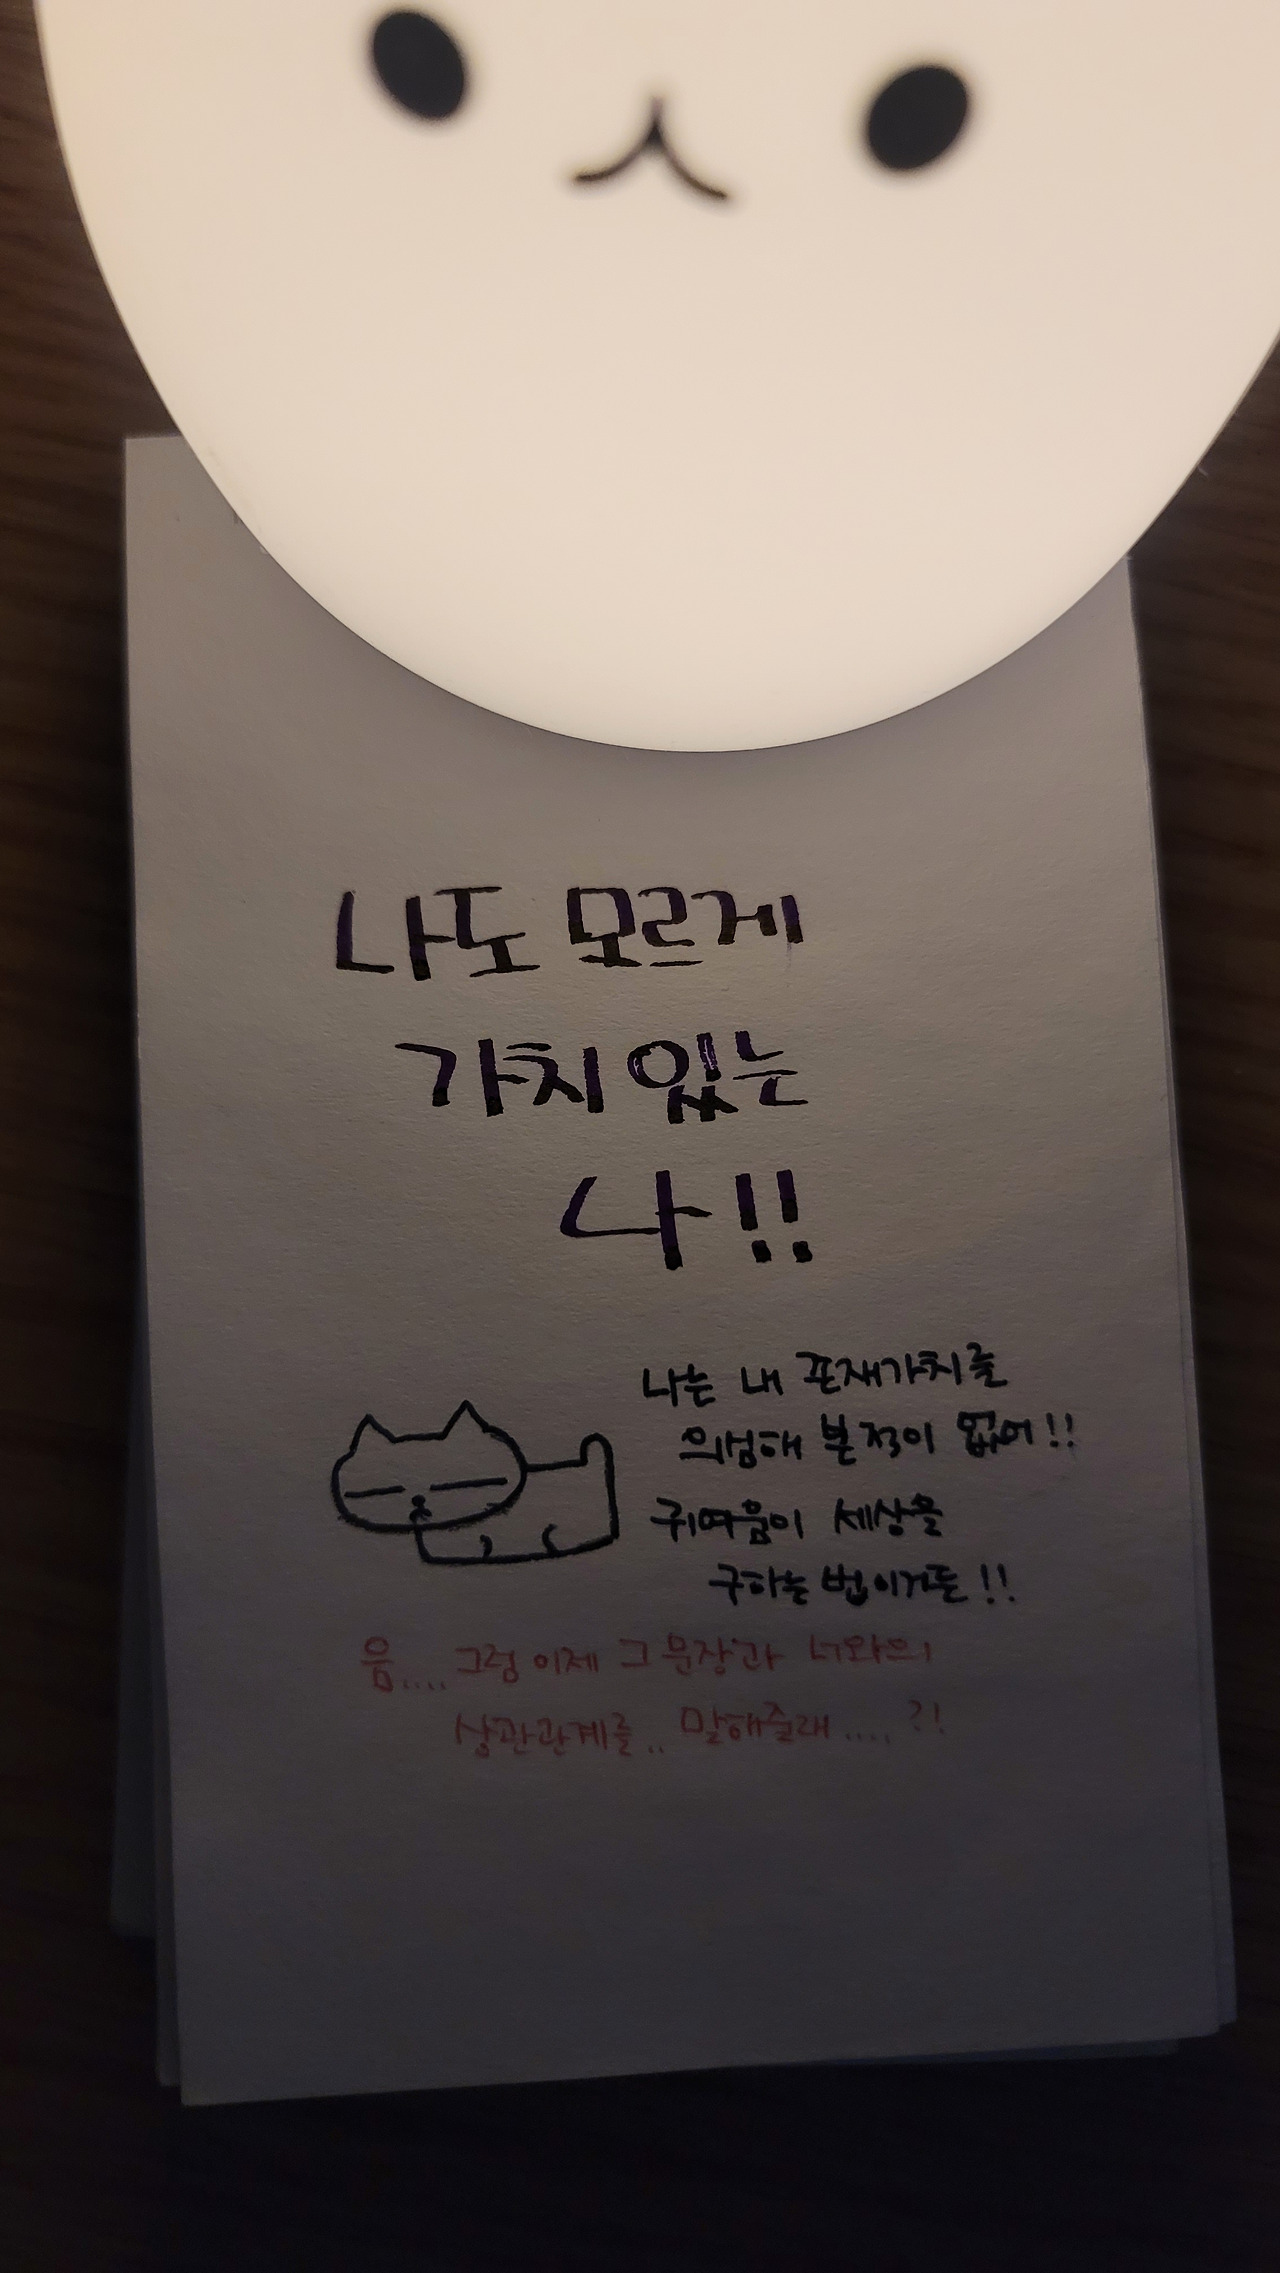 나도 모르게
가치 있는
나!!
나는 내 존재가치를
의심해 본 적이 없어!!
귀여움이 세상을
구하는 법이거든!!
음.... 그럼 이제 그 문장과 너와의
상관관계를.. 말해줄래....?!